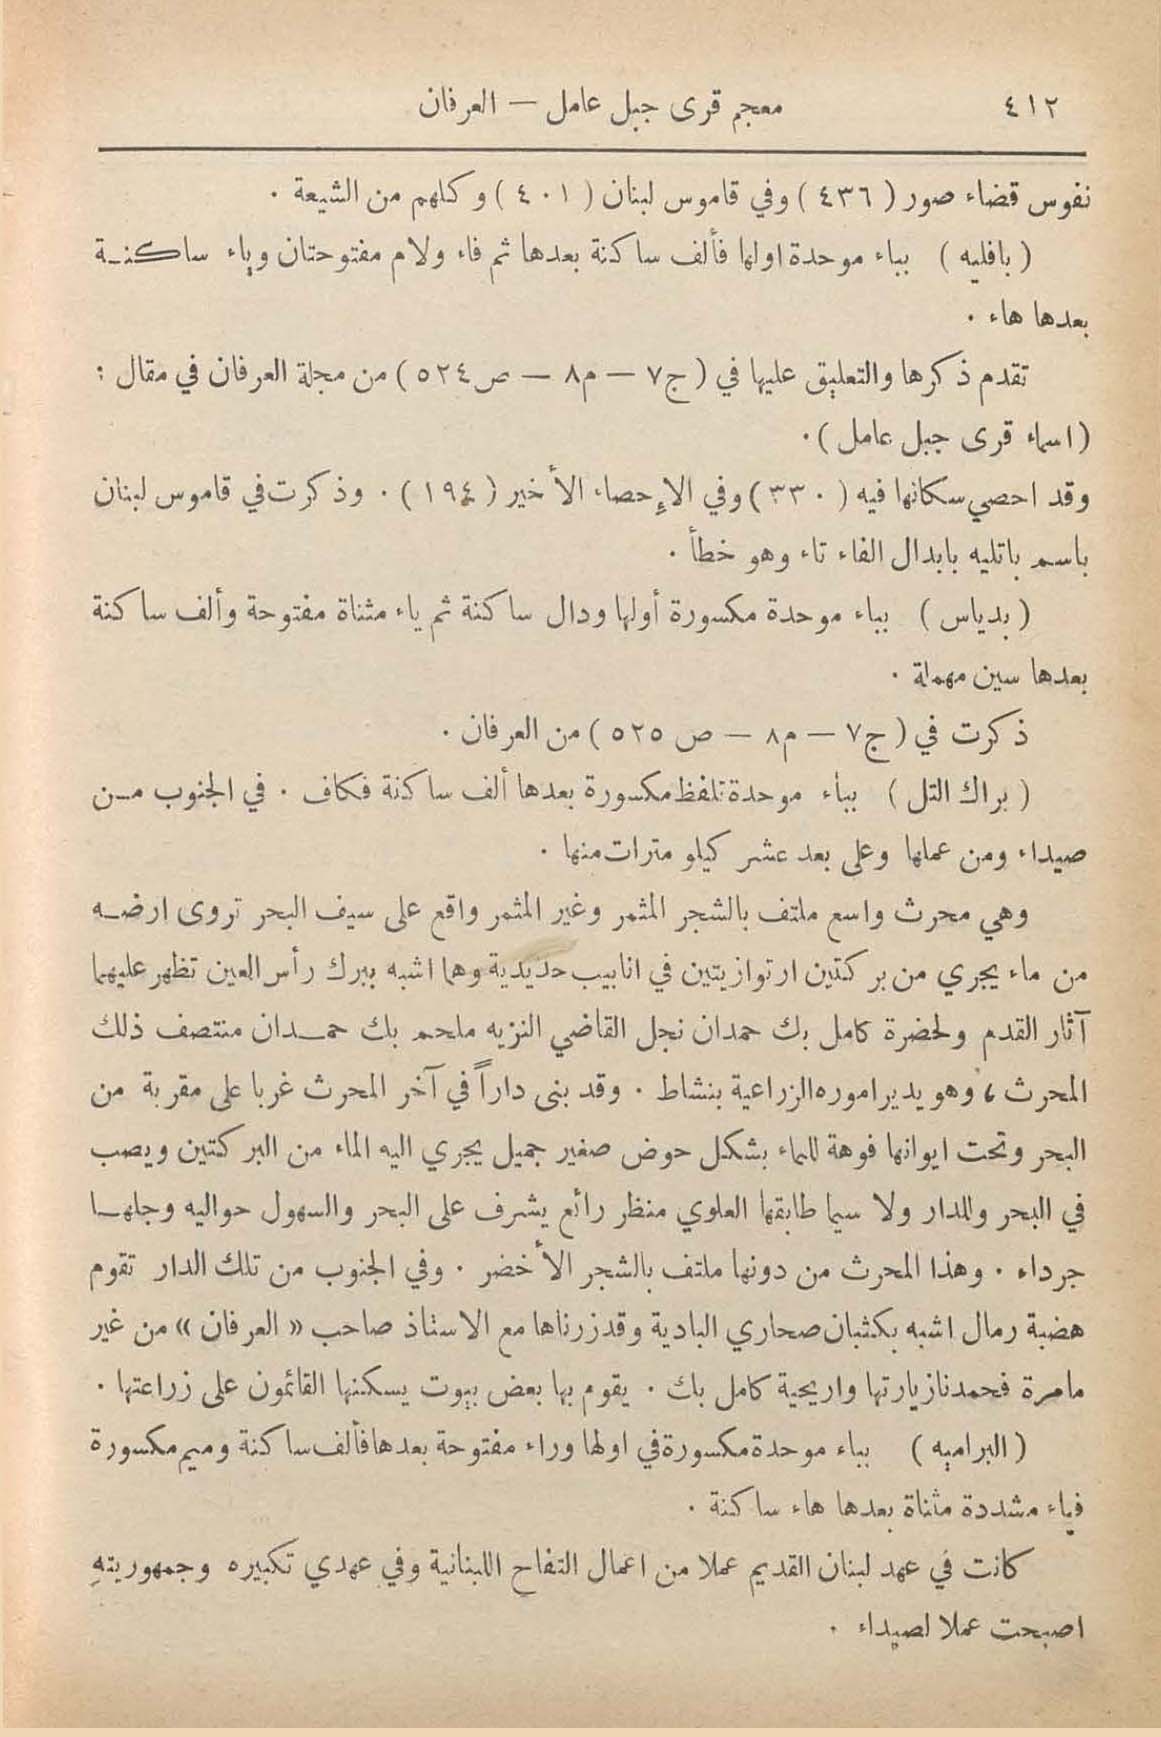 ٤١٢ معجم قرى جبل عامل — العرفان
نفوس قضاء صور ( ٤٣٦ ) وفي قاموس لبنان ( ٤٠١ ) وكلهم من الشيعة .
( بافليه ) بباء موحدة اولها فألف ساكنة بعدها ثم فاء ولام مفتوحتان وياء ساكنة
بعدها هاء .
تقدم ذكرها والتعليق عليها في ( ج٧ — م٨ — ص٥٢٤ ) من مجلة العرفان في مقال :
( اسماء قرى جبل عامل ) .
وقد احصي سكانها فيه ( ٣٣٠ ) وفي الإحصاء الأخير ( ١٩٤ ) . وذكرت في قاموس لبنان
باسم باتليه بابدال الفاء تاء وهو خطأ .
( بدياس ) بباء موحدة مكسورة أولها ودال ساكنة ثم ياء مثناة مفتوحة وألف ساكنة
بعدها سين مهملة .
ذكرت في ( ج٧ — م٨ — ص ٥٢٥ ) من العرفان .
( براك التل ) بباء موحدة تلفظ مكسورة بعدها ألف ساكنة فكاف . في الجنوب من
صيداء ومن عملها وعلى بعد عشر كيلو مترات منها .
وهي محرث واسع ملتف بالشجر المثمر وغير المثمر واقع على سيف البحر تروى ارضه
من ماء يجري من بركتين ارتوازيتين في انابيب حديدية وهما اشبه ببرك رأس العين تظهر عليهما
آثار القدم ولحضرة كامل بك حمدان نجل القاضي النزيه ملحم بك حمدان منتصف ذلك
المحرث ، وهو يدير اموره الزراعية بنشاط . وقد بنى داراً في آخر المحرث غربا على مقربة من
البحر وتحت ايوانها فوهة للماء بشكل حوض صغير جميل يجري اليه الماء من البركتين ويصب
في البحر وللدار ولا سيما طابقها العلوي منظر رائع يشرف على البحر والسهول حواليه وجلها
جرداء . وهذا المحرث من دونها ملتف بالشجر الأخضر . وفي الجنوب من تلك الدار تقوم
هضبة رمال اشبه بكثبان صحاري البادية وقد زرناها مع الاستاذ صاحب « العرفان » من غير
مامرة فحمدنا زيارتها واريحية كامل بك . يقوم بها بعض بيوت يسكنها القائمون على زراعتها .
( البراميه ) بباء موحدة مكسورة في اولها وراء مفتوحة بعدها فألف ساكنة وميم مكسورة
فياء مشددة مثناة بعدها هاء ساكنة .
كانت في عهد لبنان القديم عملا من اعمال التفاح اللبنانية وفي عهدي تكبيره وجمهوريته
اصبحت عملا لصيداء .